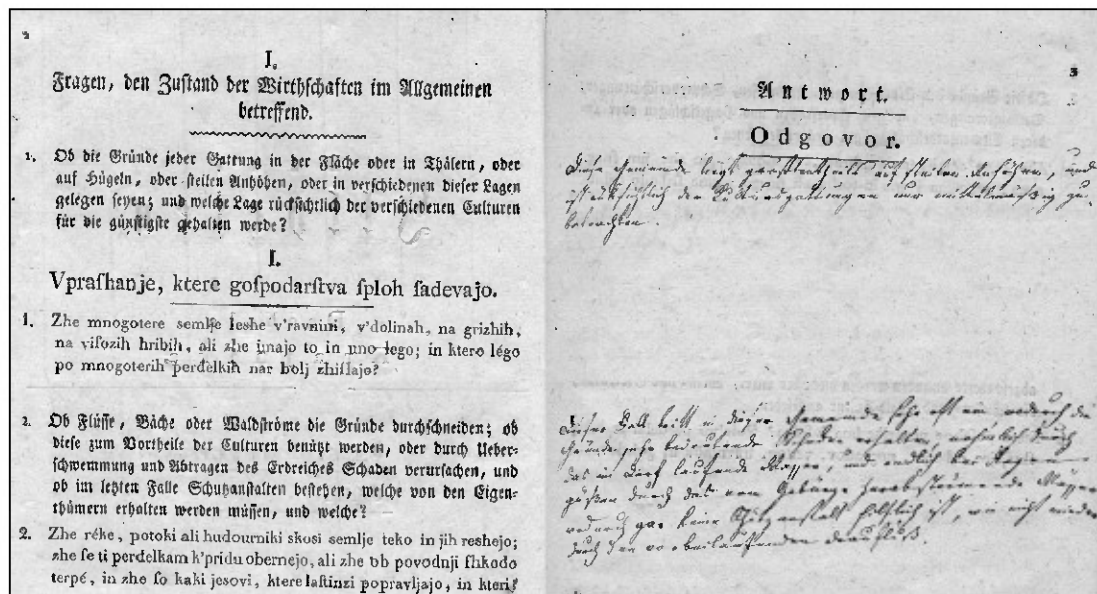 2
I.
Fragen, den Zuſtand der Wirthſchaften im Allgemeinen
betreffend.
1. Ob die Gründe jeder Gattung in der Fläche oder in Thälern, oder
auf Hügeln, oder ſteilen Anhöhen, oder in verſchiedenen dieſer Lagen
gelegen ſeyen; und welche Lage rückſichtlich der verſchiedenen Culturen
für die günſtigſte gehalten werde?
I.
Vpraſhanje, ktere goſpodarſtva ſploh ſadevajo.
1. Zhe mnogotere semlje leshe v'ravnini, v'dolinah, na grizhih,
na viſozih hribih, ali zhe imajo to in uno lego; in ktero légo
po mnogoterih perdelkih nar bolj zhiſlajo?
2. Ob Flüſſe, Bäche oder Waldſtröme die Gründe durchſchneiden; ob
dieſe zum Vortheile der Culturen benützt werden, oder durch Ueber-
ſchwemmung und Abtragen des Erdreiches Schaden verurſachen, und
ob im letzten Falle Schutzanſtalten beſtehen, welche von den Eigen-
thümern erhalten werden müſſen, und welche?
2. Zhe réke, potoki ali hudourniki skosi semlje teko in jih reshejo;
zhe ſe ti perdelkam k'pridu obernejo, ali zhe ob povodnji ſhkodo
terpé, in zhe ſo kaki jesovi, ktere laſtinzi popravljajo, in kteri?
3
Antwort.
Odgovor.
Diese Gemeinde liegt größtentheils auf steilen Anhöhen, und
ist rücksichtlich der Culturgattungen nur mittelmäßig zu
betrachten.
Dieser Fall tritt in dieser Gemeinde sehr oft ein wodurch die
Gründe sehr bedeutende Schaden erhalten, nahmlich durch
das im Dorf laufende Wasser, und endlich bei Regen
güßen durch das vom Gebürge herabströmende Wasser
wodurch gar keine Schutzanstalt ist, wie nicht minder
durch den vorbeilaufenden